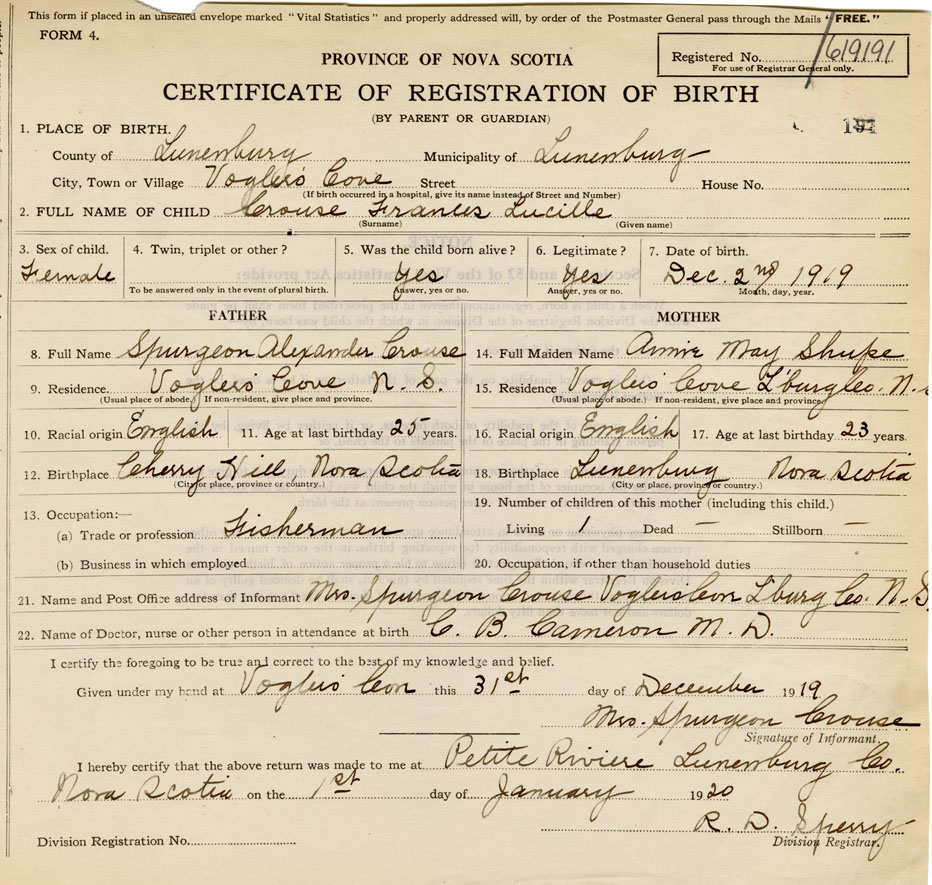 This form if placed in an unsealed envelope marked "Vital Statistics" and properly addressed will, by order of the Postmaster General pass through the Mails "FREE."
FORM 4.
Registered No. 619191
For use of Registrar General only.
PROVINCE OF NOVA SCOTIA
CERTIFICATE OF REGISTRATION OF BIRTH
(BY PARENT OR GUARDIAN)
1. PLACE OF BIRTH.
County of Lunenburg Municipality of Lunenburg
City, Town or Village Voglers Cove Street House No.
(If birth occurred in a hospital, give its name instead of Street and Number)
2. FULL NAME OF CHILD Crouse Frances Lucille
(Surname) (Given name)
3. Sex of child. 4. Twin, triplet or other? 5. Was the child born alive? 6. Legitimate? 7. Date of birth.
Female Yes Yes Dec. 2nd 1919
To be answered only in the event of plural birth. Answer, yes or no. Answer, yes or no. Month, day, year.
FATHER MOTHER
8. Full Name Spurgeon Alexander Crouse 14. Full Maiden Name Annie May Shupe
9. Residence. Voglers Cove N. S. 15. Residence Voglers Cove L'burg Co. N.
(Usual place of abode.) If non-resident, give place and province. (Usual place of abode.) If non-resident, give place and province.
10. Racial origin English 11. Age at last birthday 25 years. 16. Racial origin English 17. Age at last birthday 23 years.
12. Birthplace Cherry Hill Nova Scotia 18. Birthplace Lunenburg Nova Scotia
(City or place, province or country.) (City or place, province or country.)
13. Occupation:— 19. Number of children of this mother (including this child.)
(a) Trade or profession Fisherman Living 1 Dead — Stillborn —
(b) Business in which employed 20. Occupation, if other than household duties
21. Name and Post Office address of Informant Mrs. Spurgeon Crouse Voglers Cove L'burg Co. N. S.
22. Name of Doctor, nurse or other person in attendance at birth C. B. Cameron M. D.
I certify the foregoing to be true and correct to the best of my knowledge and belief.
Given under my hand at Voglers Cove this 31st day of December 1919.
Mrs. Spurgeon Crouse
Signature of Informant.
I hereby certify that the above return was made to me at Petite Riviere Lunenburg Co.
Nova Scotia on the 1st day of January 1920
R. D. Sperry
Division Registration No. Division Registrar.